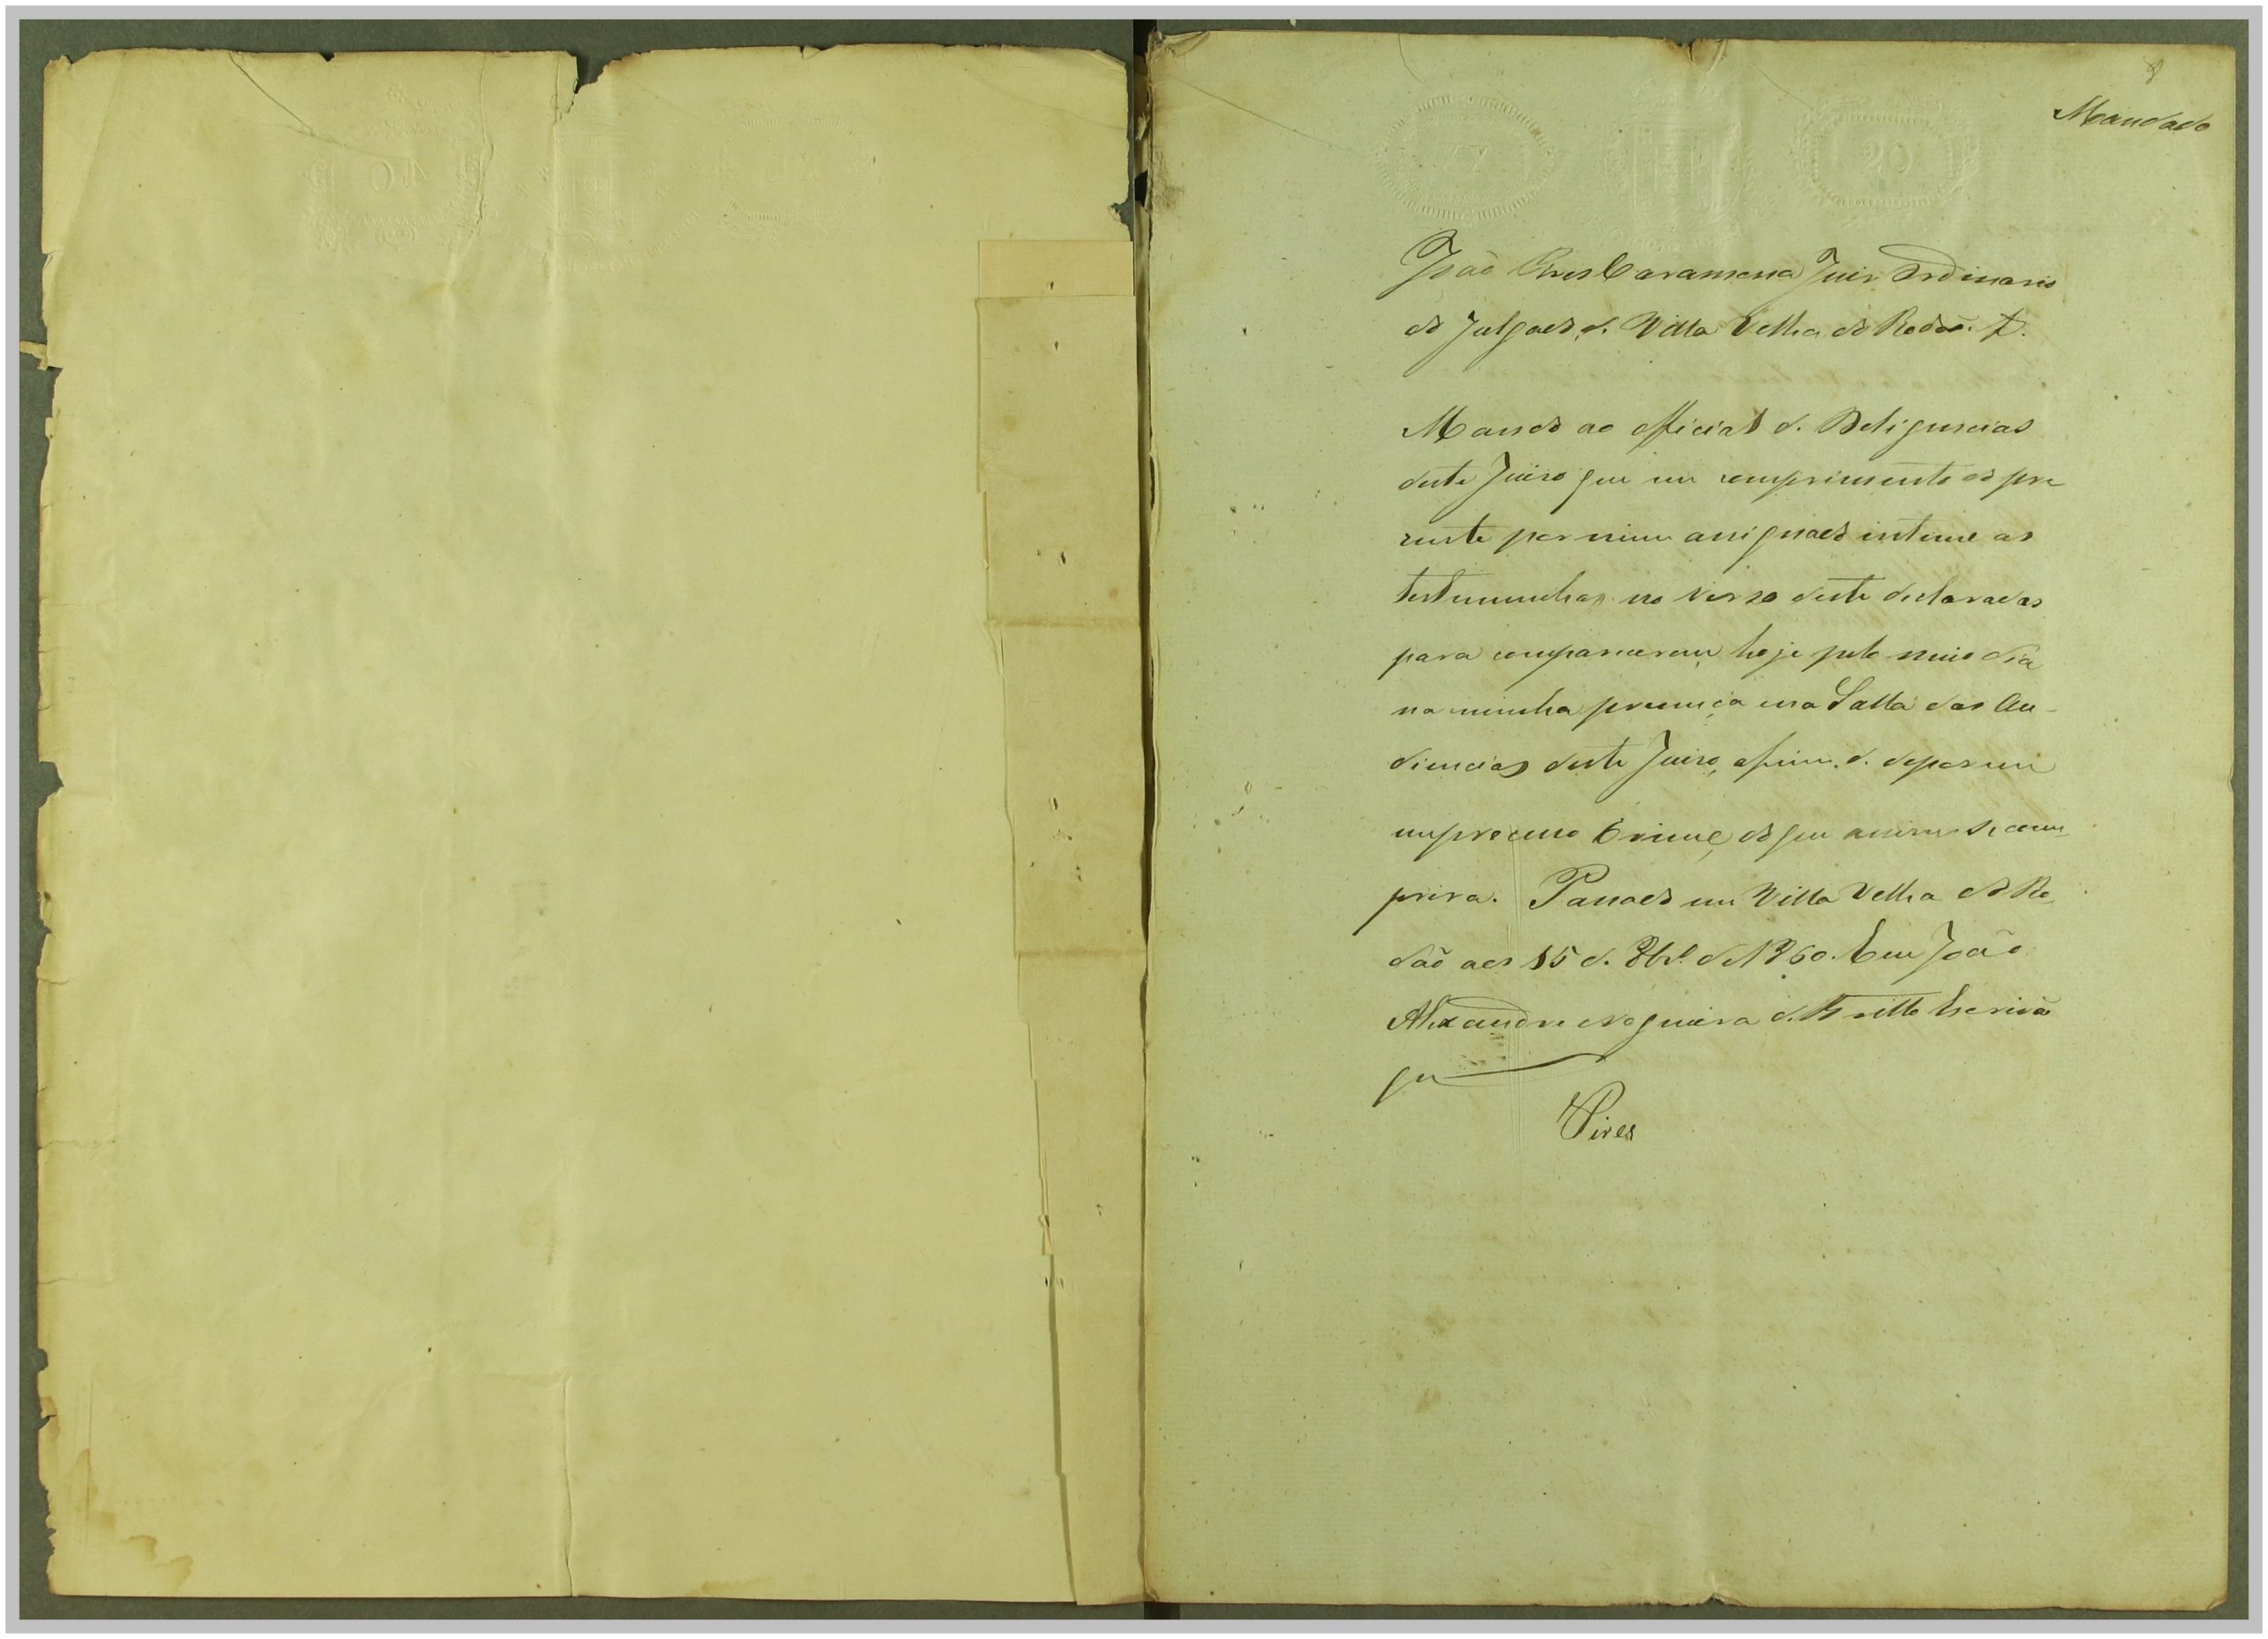 8
Mandado
XX
20
João Pires Caramena Juiz Ordinario
do Julgado de Villa Velha do Rodão. &.
Mando ao official de Deligencias
deste Juizo que em comprimento do pre
zente por mim assignado intime as
testemunhas no verso deste declaradas
para comparecerem hoje pelo meio dia
na minha presença na Salla das Au-
diencias deste Juizo, afim de depor em
um processo Crime, do que assim se cum
prira. Passado em Villa Velha do Ro
dão aos 15 de 8br.º de 1860. Eu João
Alexandre Nogueira de Britto Escrivão
que
Pires